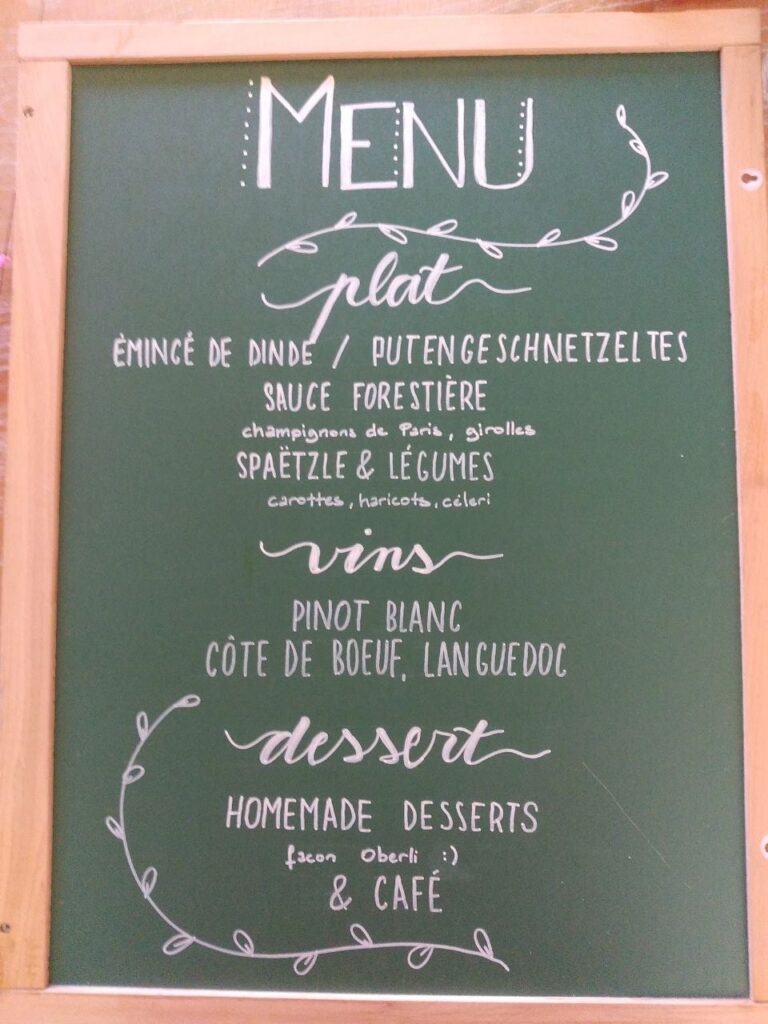 MENU
plat
ÉMINCÉ DE DINDE / PUTENGESCHNETZELTES
SAUCE FORESTIÈRE
champignons de Paris, girolles
SPAËTZLE & LÉGUMES
carottes, haricots, céleri
vins
PINOT BLANC
CÔTE DE BOEUF, LANGUEDOC
dessert
HOMEMADE DESSERTS
facon Oberli :)
& CAFÉ